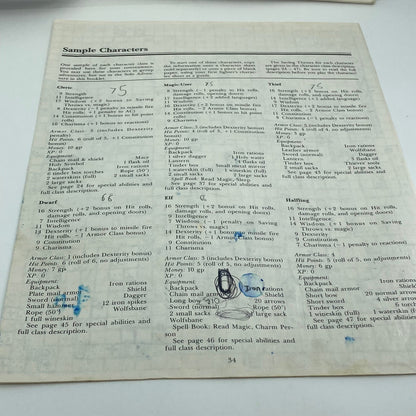 Sample Characters
One sample of each character class is
provided here for your convenience.
You may use these characters in group
adventures, but not in the Solo Adven-
ture in this booklet.
To start one of these characters, copy
the information onto a character sheet
(sold separately) or onto a piece of blank
paper, using your first fighter's charac-
ter sheet as a guide.
The Saving Throws for each character
are given in the character class description
Be sure to read the full
description before you play the character!
Cleric 75
9 Strength
11 Intelligence
17 Wisdom (+2 bonus on Saving
Throws vs. magic)
8 Dexterity (−1 penalty to missile fire
14 Constitution (+1 bonus to hit point
rolls)
16 Charisma
Armor Class:
Hit Points:
Money: 10 gp
XP: 0
Equipment:
Chain mail & shield Mace
Holy Symbol 1 flask oil
Backpack Iron rations
6 tinder box torches Rope (50')
2 waterskins (full) 2 small sacks
2 large sacks
See page 24 for special abilities and
full class description.
Magic-User 75
8 Strength
17 Intelligence
11 Wisdom
16 Dexterity (+2 bonus to missile fire
Hit rolls, −2 Armor Class bonus)
14 Constitution (+1 bonus to hit point
rolls)
9 Charisma
Armor Class: 7 (includes Dexterity bonus)
Hit Points:
Money: 10 gp
XP: 0
Equipment:
Backpack Iron rations
1 silver dagger 1 Holy water
Lantern 2 flasks oil
Tinder box 1 small metal mirror
1 waterskin (full) 1 wineskin (full)
2 small sacks 2 large sacks
Spell Book: Read Magic, Sleep
See page 37 for special abilities and
full class description.
Thief
16 Strength (+2 bonus on Hit rolls,
damage rolls, opening doors)
14 Intelligence
9 Wisdom
17 Dexterity (+2 bonus to missile fire
Hit rolls, −2 Armor Class bonus)
11 Constitution
8 Charisma
Armor Class: 5 (includes Dexterity bonus)
Hit Points: 4 (roll of 4, no adjustments)
Money: 3 gp
XP: 0
Equipment:
Backpack Iron rations
Leather armor Wolfsbane
Sword (normal) Dagger
Lantern 3 flasks oil
Tinder box Thieves' tools
1 waterskin (full) 2 small sacks
2 large sacks
See page 43 for special abilities and
full class description.
Dwarf 66
16 Strength (+2 bonus on Hit rolls,
damage rolls, and opening doors)
7 Intelligence
11 Wisdom
14 Dexterity (+1 bonus to missile fire
Hit rolls, −1 Armor Class bonus)
9 Constitution
9 Charisma
Armor Class: 1 (includes Dexterity bonus)
Hit Points: 6 (roll of 6, no adjustments)
Money: 7 gp
XP: 0
Equipment:
Backpack Iron rations
Plate mail armor Shield
Sword (normal) Dagger
Small hammer 12 iron spikes
Rope (50') Wolfsbane
1 full wineskin
See page 45 for special abilities and
full class description.
Elf
16 Strength (+2 bonus on Hit rolls,
damage rolls, and opening doors)
9 Intelligence
7 Wisdom (−1 penalty on Saving
Throws vs. magic)
14 Dexterity (+1 bonus to missile fire
Hit rolls, −1 Armor Class bonus)
9 Constitution
11 Charisma
Armor Class: 3 (includes Dexterity bonus)
Hit Points: 5 (roll of 5, no adjustments)
Money: 10 gp
XP: 0
Equipment:
Backpack Iron rations
Chain mail armor Shield
Long bow 20 arrows
Sword (normal)
2 small sacks 1 large sack
Wolfsbane
Spell Book: Read Magic, Charm Per-
son
See page 46 for special abilities and
full class description.
Halfling
16 Strength (+2 bonus on Hit rolls,
damage rolls, and opening doors)
11 Intelligence
9 Wisdom
9 Dexterity
9 Constitution
7 Charisma (−1 penalty to reactions)
Armor Class: 4
Hit Points: 6 (roll of 6, no adjustments)
Money: 7 gp
XP: 0
Equipment:
Backpack Iron rations
Chain mail armor Shield
Short bow 20 arrows
Short sword 4 silver arrows
1 tinder box 6 torches
1 waterskin (full) 1 wineskin (full)
See page 47 for special abilities and
full class description.
34